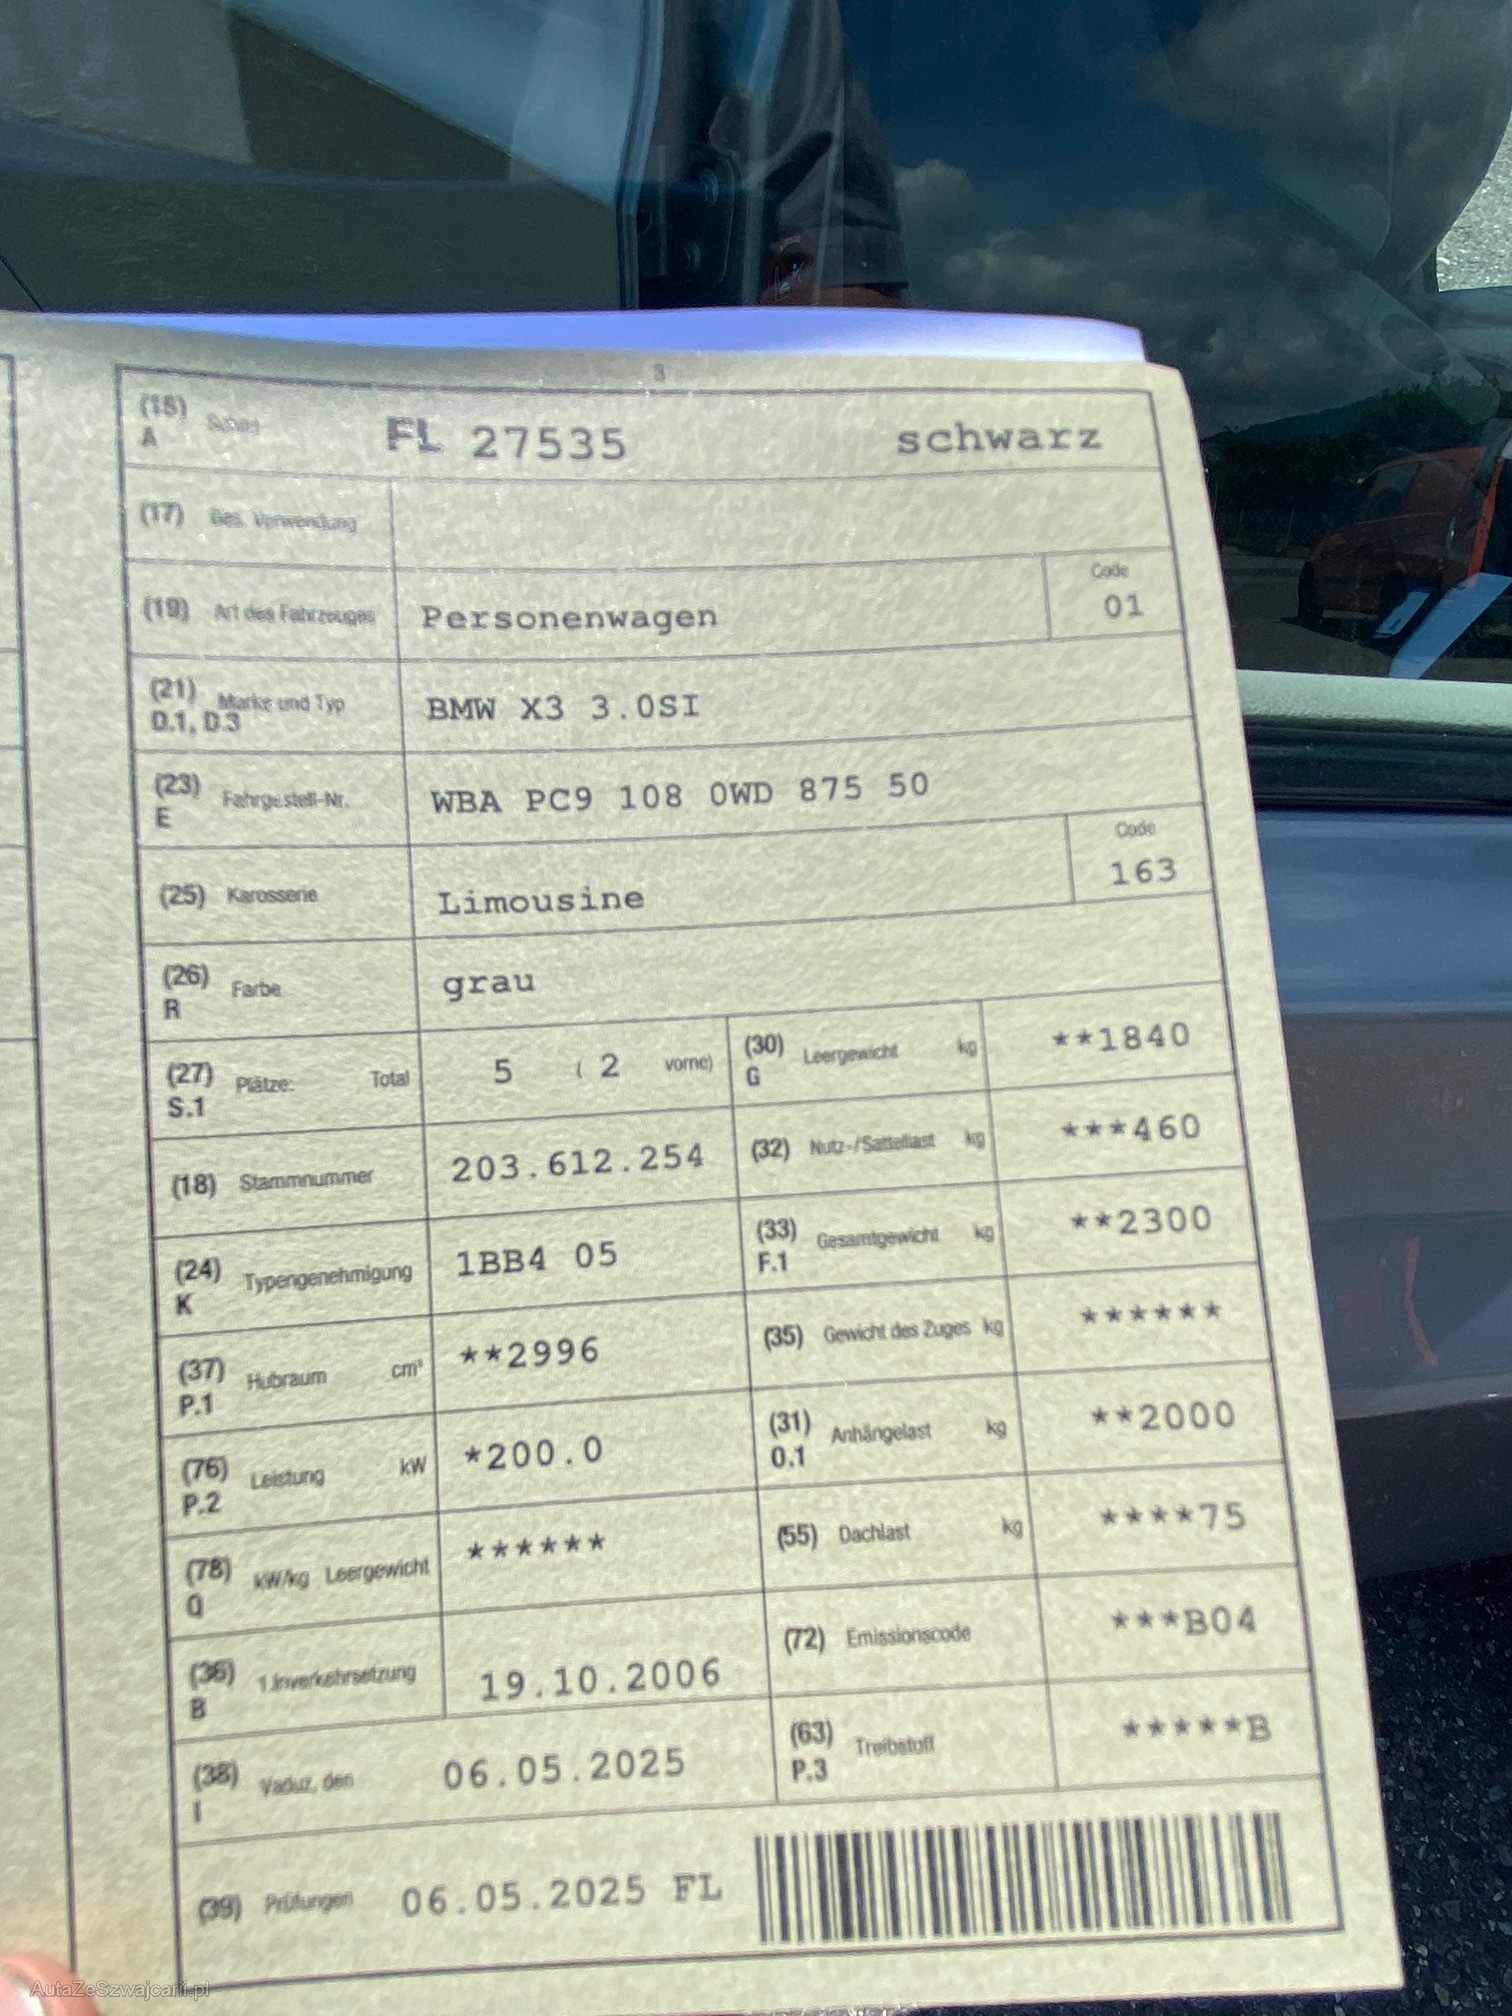 3
(15) Schild FL 27535 schwarz
A
(17) Bes. Verwendung
(19) Art des Fahrzeuges Personenwagen Code 01
(21) Marke und Typ BMW X3 3.0SI
D.1, D.3
(23) Fahrgestell-Nr. WBA PC9 108 0WD 875 50
E
(25) Karosserie Limousine Code 163
(26) Farbe grau
R
(27) Plätze: Total 5 ( 2 vorne)
S.1
(30) Leergewicht kg **1840
G
(18) Stammnummer 203.612.254
(32) Nutz-/Sattellast kg ***460
(24) Typengenehmigung 1BB4 05
K
(33) Gesamtgewicht kg **2300
F.1
(37) Hubraum cm³ **2996
P.1
(35) Gewicht des Zuges kg ******
(76) Leistung kW *200.0
P.2
(31) Anhängelast kg **2000
O.1
(78) kW/kg Leergewicht ******
Q
(55) Dachlast kg ****75
(36) 1.Inverkehrsetzung 19.10.2006
B
(72) Emissionscode ***B04
(38) Vaduz, den 06.05.2025
I
(63) Treibstoff *****B
P.3
(39) Prüfungen 06.05.2025 FL
AutaZeSzwajcarii.pl